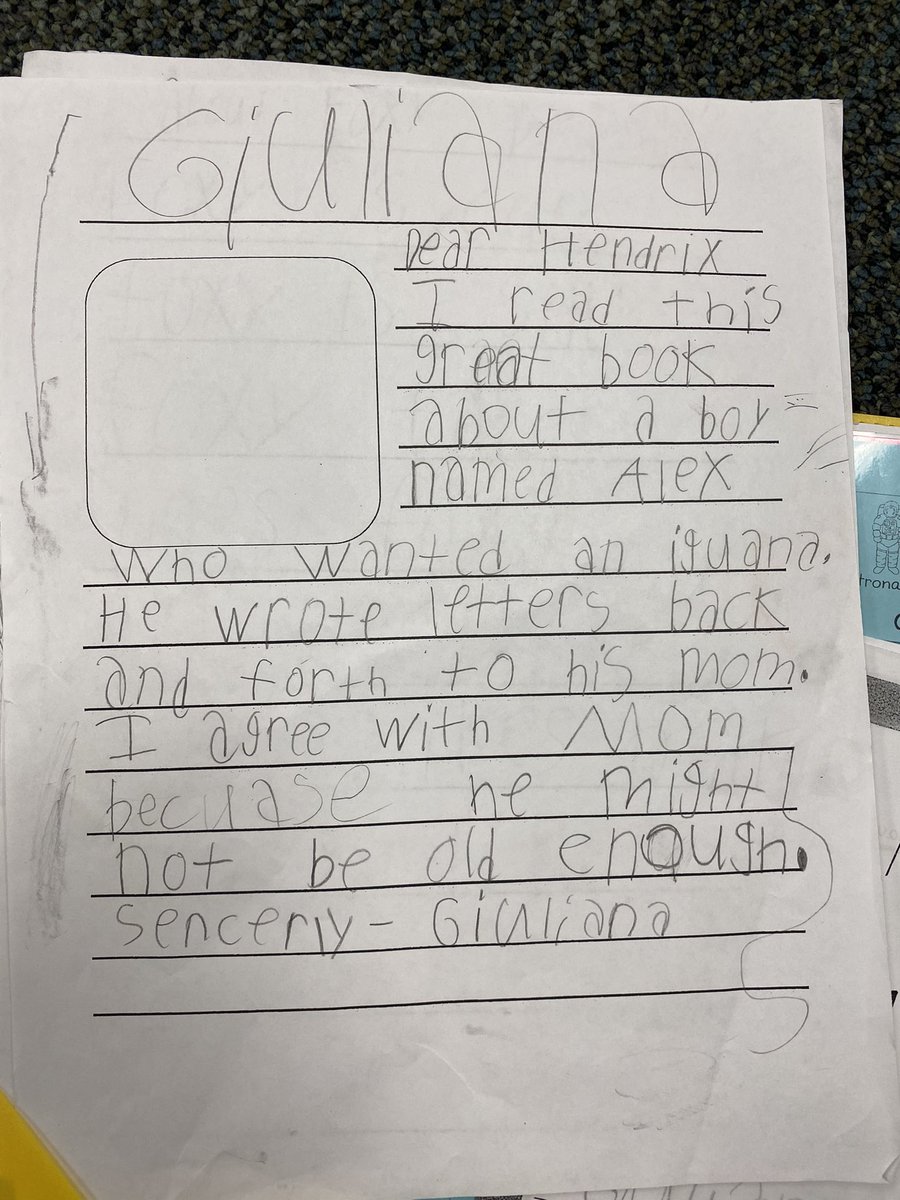 Giuliana
Dear Hendrix
I read this
great book
about a boy
named Alex
Who wanted an iguana.
He wrote letters back
and forth to his mom.
I agree with Mom
becuase he might
not be old enough.
Sencerly - Giuliana
trona